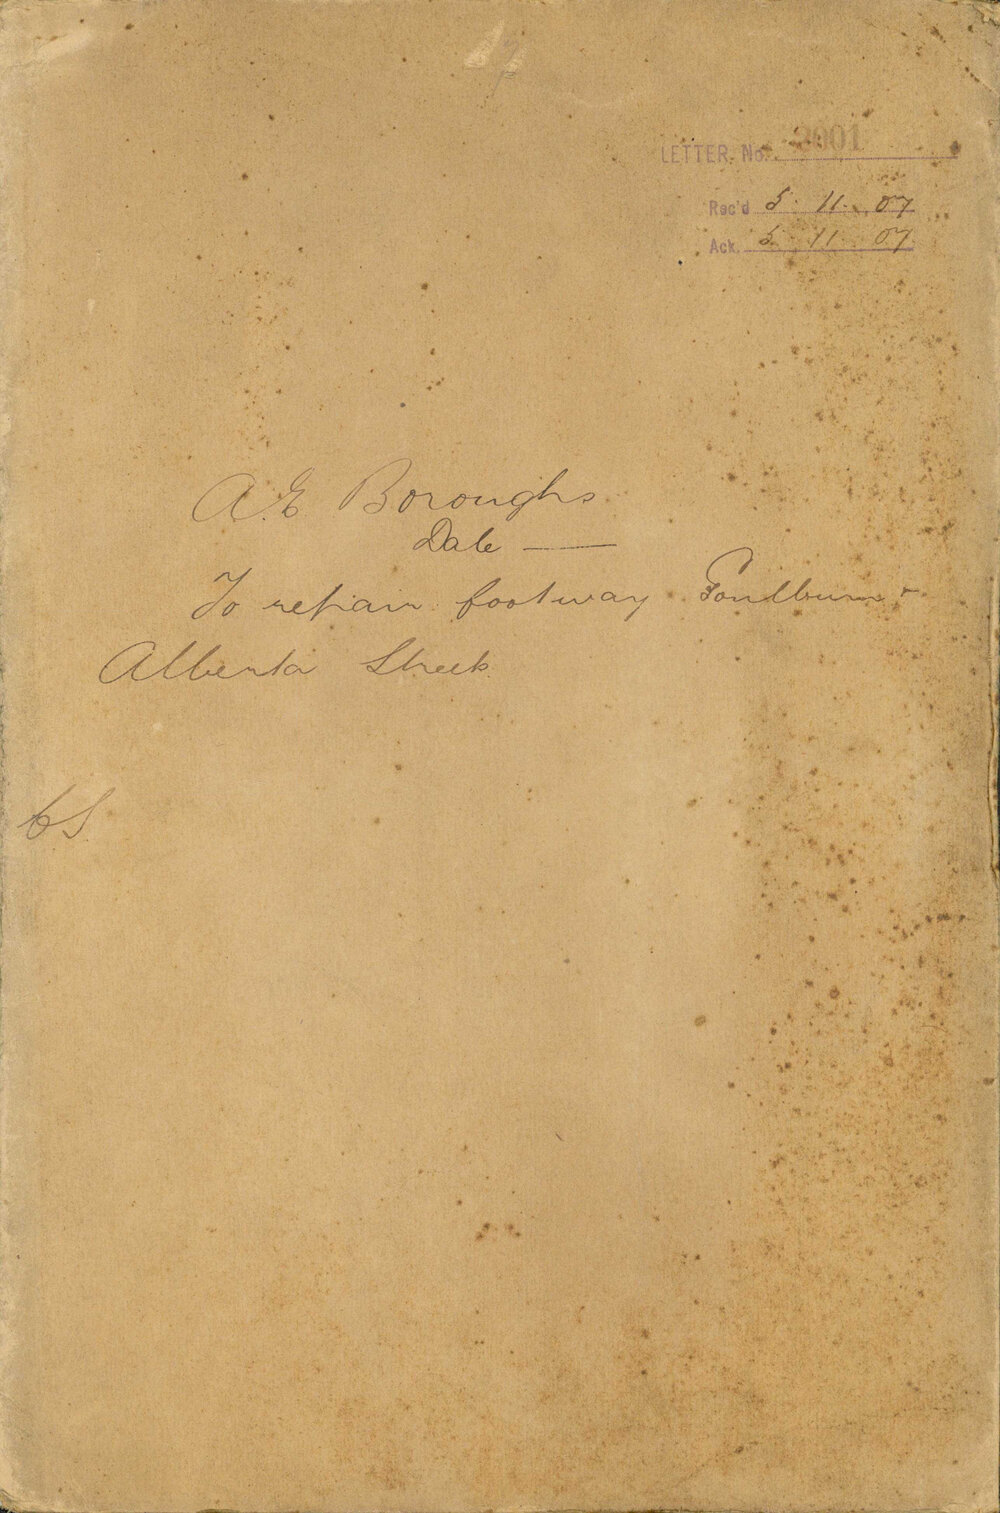 LETTER. No. 2001
Rec'd 5. 11. 07
Ack. 5. 11. 07
A.E Boroughs
Date —
To repair footway Goulburn &
Alberta Streets
CS